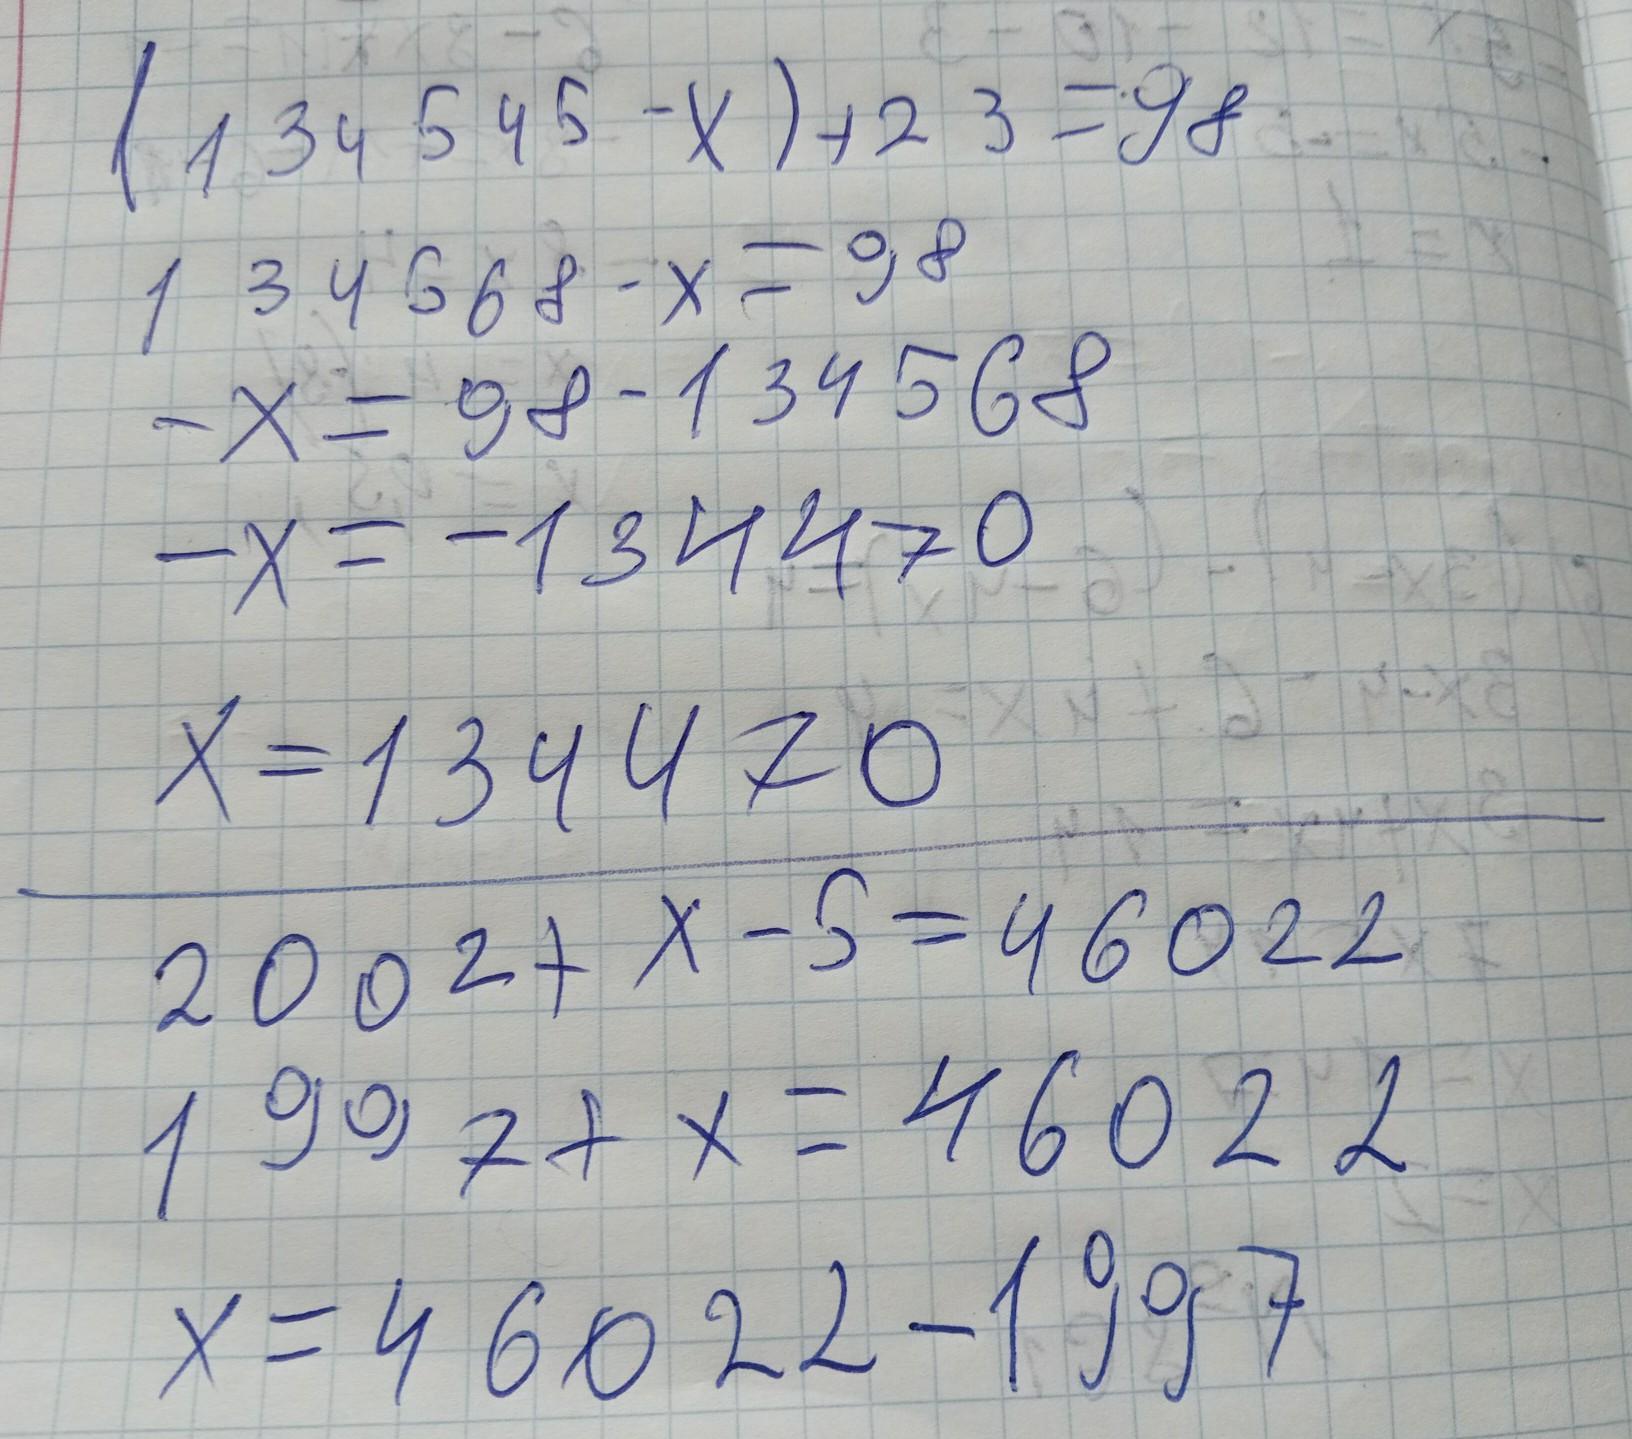 (134545-x)+23=98
134568-x=98
-x=98-134568
-x=-134470
x=134470
2002+x-5=46022
1997+x=46022
x=46022-1997